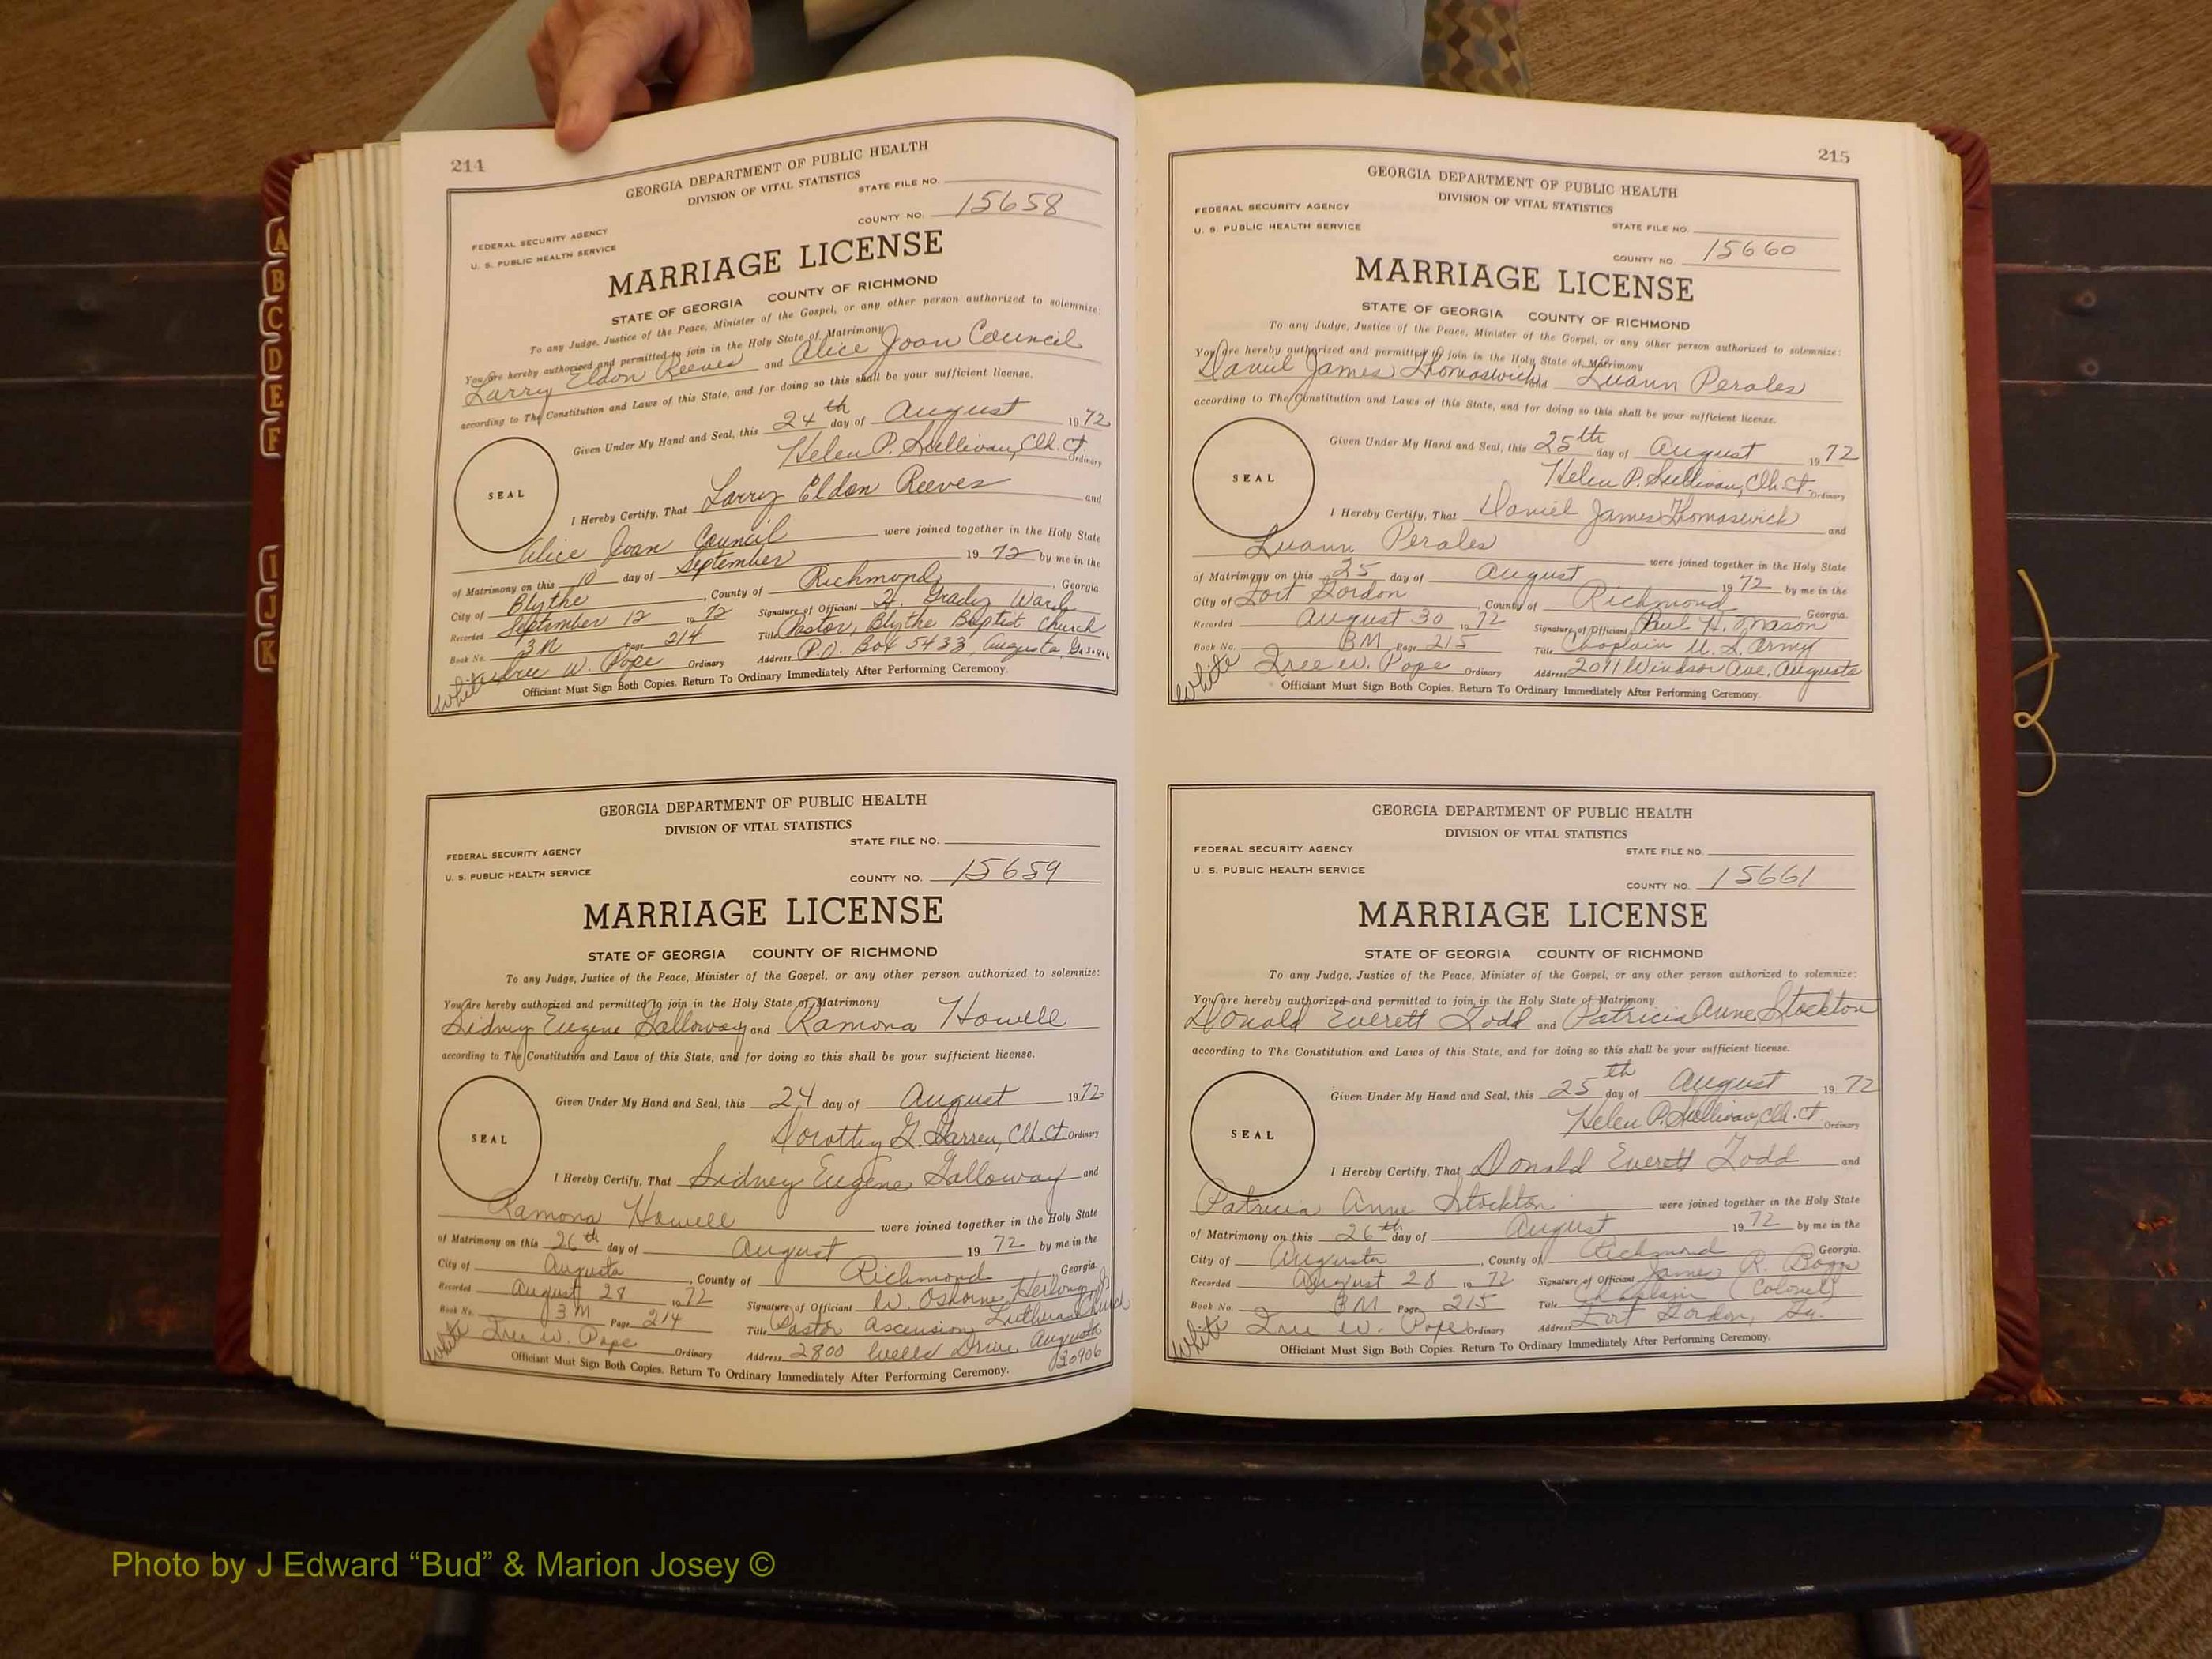 214
GEORGIA DEPARTMENT OF PUBLIC HEALTH
DIVISION OF VITAL STATISTICS
STATE FILE NO.
COUNTY NO. 15658
FEDERAL SECURITY AGENCY
U. S. PUBLIC HEALTH SERVICE
MARRIAGE LICENSE
STATE OF GEORGIA COUNTY OF RICHMOND
To any Judge, Justice of the Peace, Minister of the Gospel, or any other person authorized to solemnize:
You are hereby authorized and permitted to join in the Holy State of Matrimony
Larry Eldon Reeves and Alice Joan Council
according to The Constitution and Laws of this State, and for doing so this shall be your sufficient license.
Given Under My Hand and Seal, this 24th day of August 1972
Helen P. Sullivan, Clk. Ct. Ordinary
SEAL
I Hereby Certify, That Larry Eldon Reeves and
Alice Joan Council were joined together in the Holy State
of Matrimony on this 10 day of September 1972 by me in the
City of Blythe, County of Richmond, Georgia.
Recorded September 12 1972 Signature of Officient H. Grady Ward
Book No. 3M Page 214 Title Pastor, Blythe Baptist Church
White Free W. Pope Ordinary Address P.O. Box 5433, Augusta, Ga
Officiant Must Sign Both Copies. Return To Ordinary Immediately After Performing Ceremony.
GEORGIA DEPARTMENT OF PUBLIC HEALTH
DIVISION OF VITAL STATISTICS
STATE FILE NO.
FEDERAL SECURITY AGENCY
U. S. PUBLIC HEALTH SERVICE
COUNTY NO. 15659
MARRIAGE LICENSE
STATE OF GEORGIA COUNTY OF RICHMOND
To any Judge, Justice of the Peace, Minister of the Gospel, or any other person authorized to solemnize:
You are hereby authorized and permitted to join in the Holy State of Matrimony
Sidney Eugene Galloway and Ramona Howell
according to The Constitution and Laws of this State, and for doing so this shall be your sufficient license.
Given Under My Hand and Seal, this 24 day of August 1972
Dorothy G. Clk. Ct. Ordinary
SEAL
I Hereby Certify, That Sidney Eugene Galloway and
Ramona Howell were joined together in the Holy State
of Matrimony on this 26th day of August 1972 by me in the
City of Augusta, County of Richmond, Georgia
Recorded August 28 1972 Signature of Officient W. Osborne Herlong Jr
Book No. 3M Page 214 Title Pastor Ascension Lutheran Church
White Free W. Pope Ordinary Address 2800 Wells Drive Augusta
30906
Officiant Must Sign Both Copies. Return To Ordinary Immediately After Performing Ceremony.
215
GEORGIA DEPARTMENT OF PUBLIC HEALTH
DIVISION OF VITAL STATISTICS
FEDERAL SECURITY AGENCY
U. S. PUBLIC HEALTH SERVICE
STATE FILE NO.
COUNTY NO. 15660
MARRIAGE LICENSE
STATE OF GEORGIA COUNTY OF RICHMOND
To any Judge, Justice of the Peace, Minister of the Gospel, or any other person authorized to solemnize:
You are hereby authorized and permitted to join in the Holy State of Matrimony
Daniel James Thomaswick and Luann Perales
according to The Constitution and Laws of this State, and for doing so this shall be your sufficient license.
Given Under My Hand and Seal, this 25th day of August 1972
Helen P. Sullivan, Clk. Ct. Ordinary
SEAL
I Hereby Certify, That Daniel James Thomaswick and
Luann Perales were joined together in the Holy State
of Matrimony on this 25 day of August 1972 by me in the
City of Fort Gordon, County of Richmond Georgia.
Recorded August 30 1972 Signature of Officiant Paul H. Mason
Book No. 3M Page 215 Title Chaplain U. S. Army
White Free W. Pope Ordinary Address 2011 Windsor Ave. Augusta
Officiant Must Sign Both Copies. Return To Ordinary Immediately After Performing Ceremony.
GEORGIA DEPARTMENT OF PUBLIC HEALTH
DIVISION OF VITAL STATISTICS
FEDERAL SECURITY AGENCY
U. S. PUBLIC HEALTH SERVICE
STATE FILE NO.
COUNTY NO. 15661
MARRIAGE LICENSE
STATE OF GEORGIA COUNTY OF RICHMOND
To any Judge, Justice of the Peace, Minister of the Gospel, or any other person authorized to solemnize:
You are hereby authorized and permitted to join in the Holy State of Matrimony
Donald Everett Todd and Patricia Anne Stockton
according to The Constitution and Laws of this State, and for doing so this shall be your sufficient license.
Given Under My Hand and Seal, this 25th day of August 1972
Helen P. Sullivan, Clk. Ct. Ordinary
SEAL
I Hereby Certify, That Donald Everett Todd and
Patricia Anne Stockton were joined together in the Holy State
of Matrimony on this 26th day of August 1972 by me in the
City of Augusta, County of Richmond Georgia.
Recorded August 28 1972 Signature of Officiant James R. Boggs
Book No. 3M Page 215 Title Chaplain (Colonel)
White Free W. Pope Ordinary Address Fort Gordon, Ga.
Officiant Must Sign Both Copies. Return To Ordinary Immediately After Performing Ceremony.
A
B
C
D
E
F
I
J
K
Photo by J Edward “Bud” & Marion Josey ©